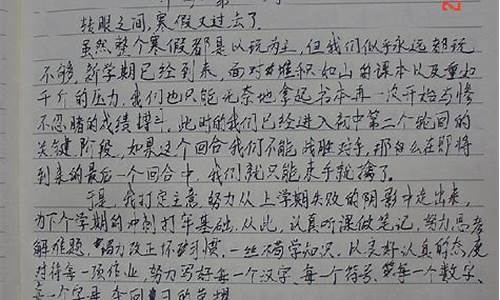 转眼之间,寒假又过去了。
虽然整个寒假都是以玩为主,但我们似乎永远都玩
不够,新学期已经到来,面对堆积如山的课本以及重如
千斤的压力,我们也只能无奈地拿起书本再一次开始与惨
不忍睹的成绩搏斗,此时的我们已经进入初中第二个轮回的
关键阶段,如果这个回合我们不能战胜对手,那么在即将
到来的最后一个回合中,我们就只能束手就擒了。
于是,我打定主意,努力从上学期失败的阴影中走出来,
为下个学期的冲刺打牢基础,从此,认真听课做笔记,努力思考
解难题,努力改正坏习惯,一丝不苟学知识。以良好认真的态度
对待每一项作业,努力写好每一个汉字、每一个符号、每一个数字、
每一个字母,夺回